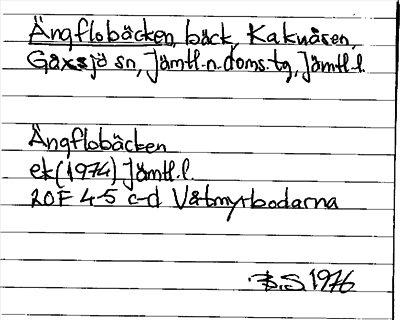 Ängflobäcken, bäck, Kakuåsen,
Gåxsjö sn, Jämtl. n. doms. tg, Jämtl. l.
Ängflobäcken
ek (1974) Jämtl. l.
20F 4-5 c-d Våtmyrbodarna
B.S. 1976